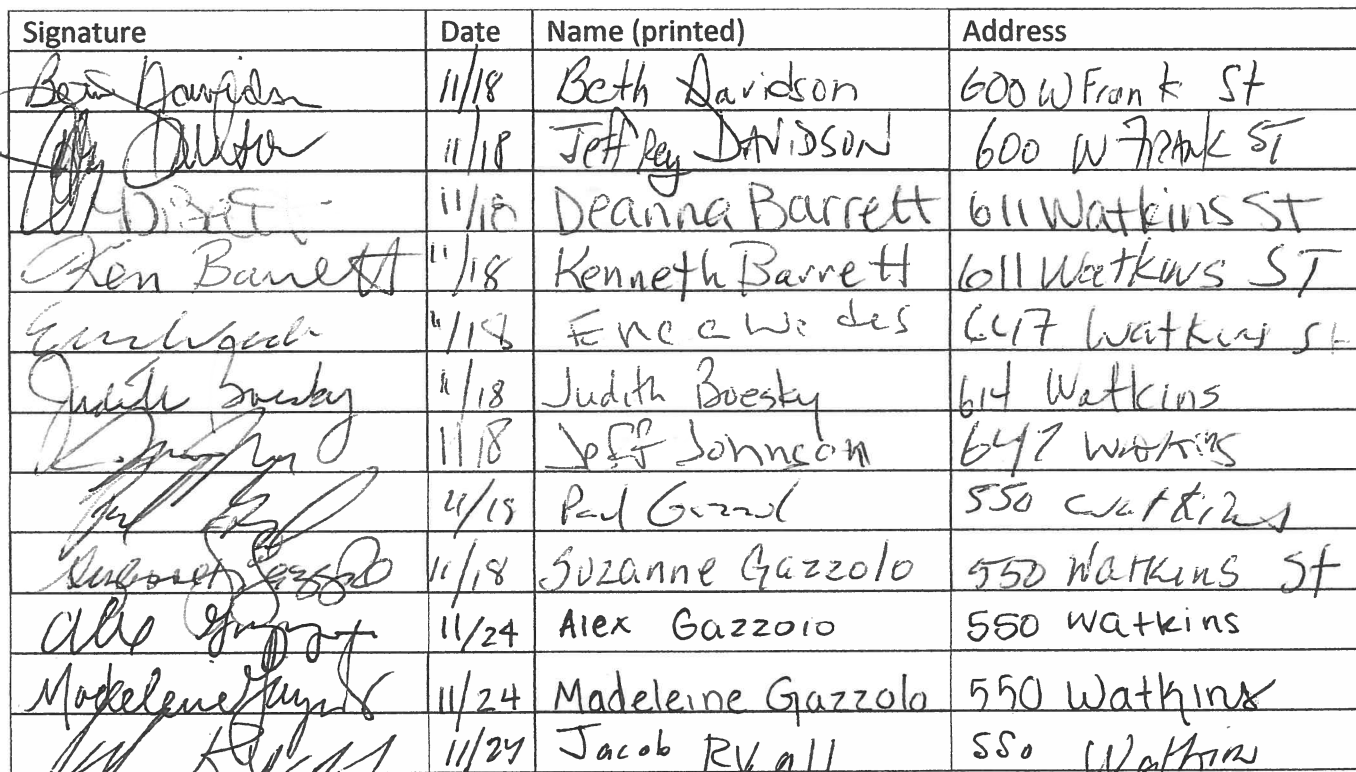 Signature Date Name (printed) Address
Beth Davidson 11/18 Beth Davidson 600 W Frank St
11/18 Jeffrey DAVIDSON 600 W FRANK ST
11/18 Deanna Barrett 611 Watkins ST
Ken Barrett 11/18 Kenneth Barrett 611 Watkins ST
11/18 Watkins St
Judith Boesky 11/18 Judith Boesky 614 Watkins
11/18 Jeff Johnson 647 Watkins
11/18 Paul 550 Watkins
Suzanne Gazzolo 11/18 Suzanne Gazzolo 550 Watkins St
Alex 11/24 Alex Gazzolo 550 Watkins
Madeleine 11/24 Madeleine Gazzolo 550 Watkins
11/24 Jacob Ryall 550 Watkins